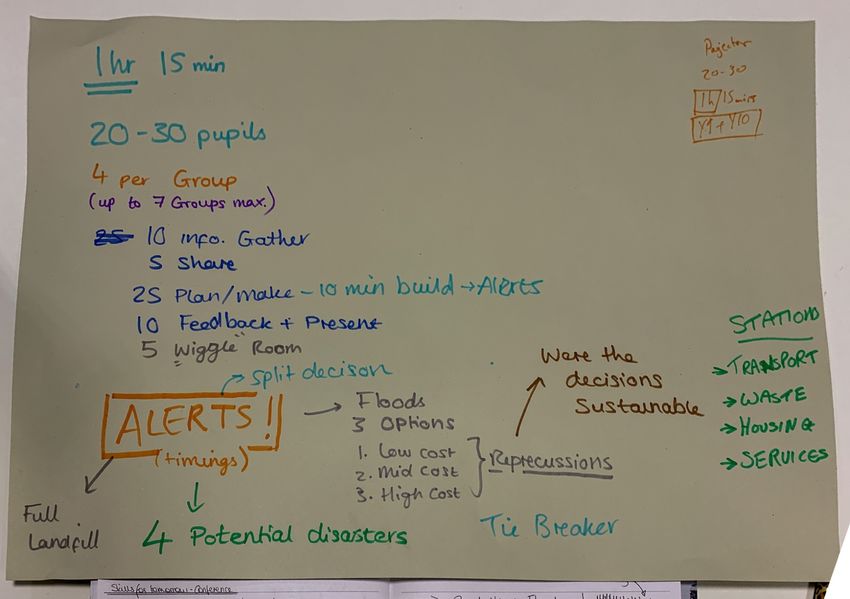 1hr 15 min
20-30 pupils
4 per Group
(up to 7 Groups max.)
25 10 info. Gather
5 Share
25 Plan/make - 10 min build → Alerts
10 Feedback + Present
5 "Wiggle" Room
split decison
ALERTS!
(timings)
Full
Landfill
4 Potential disasters
Floods
3 Options
1. Low cost
2. Mid cost
3. High Cost
Reprecussions
Were the
decisions
Sustainable
Tie Breaker
Projector
20-30
1h/15mins
Y9 + Y10
STATIONS
→ TRANSPORT
→ WASTE
→ HOUSING
→ SERVICES
Skills for tomorrow - Conference